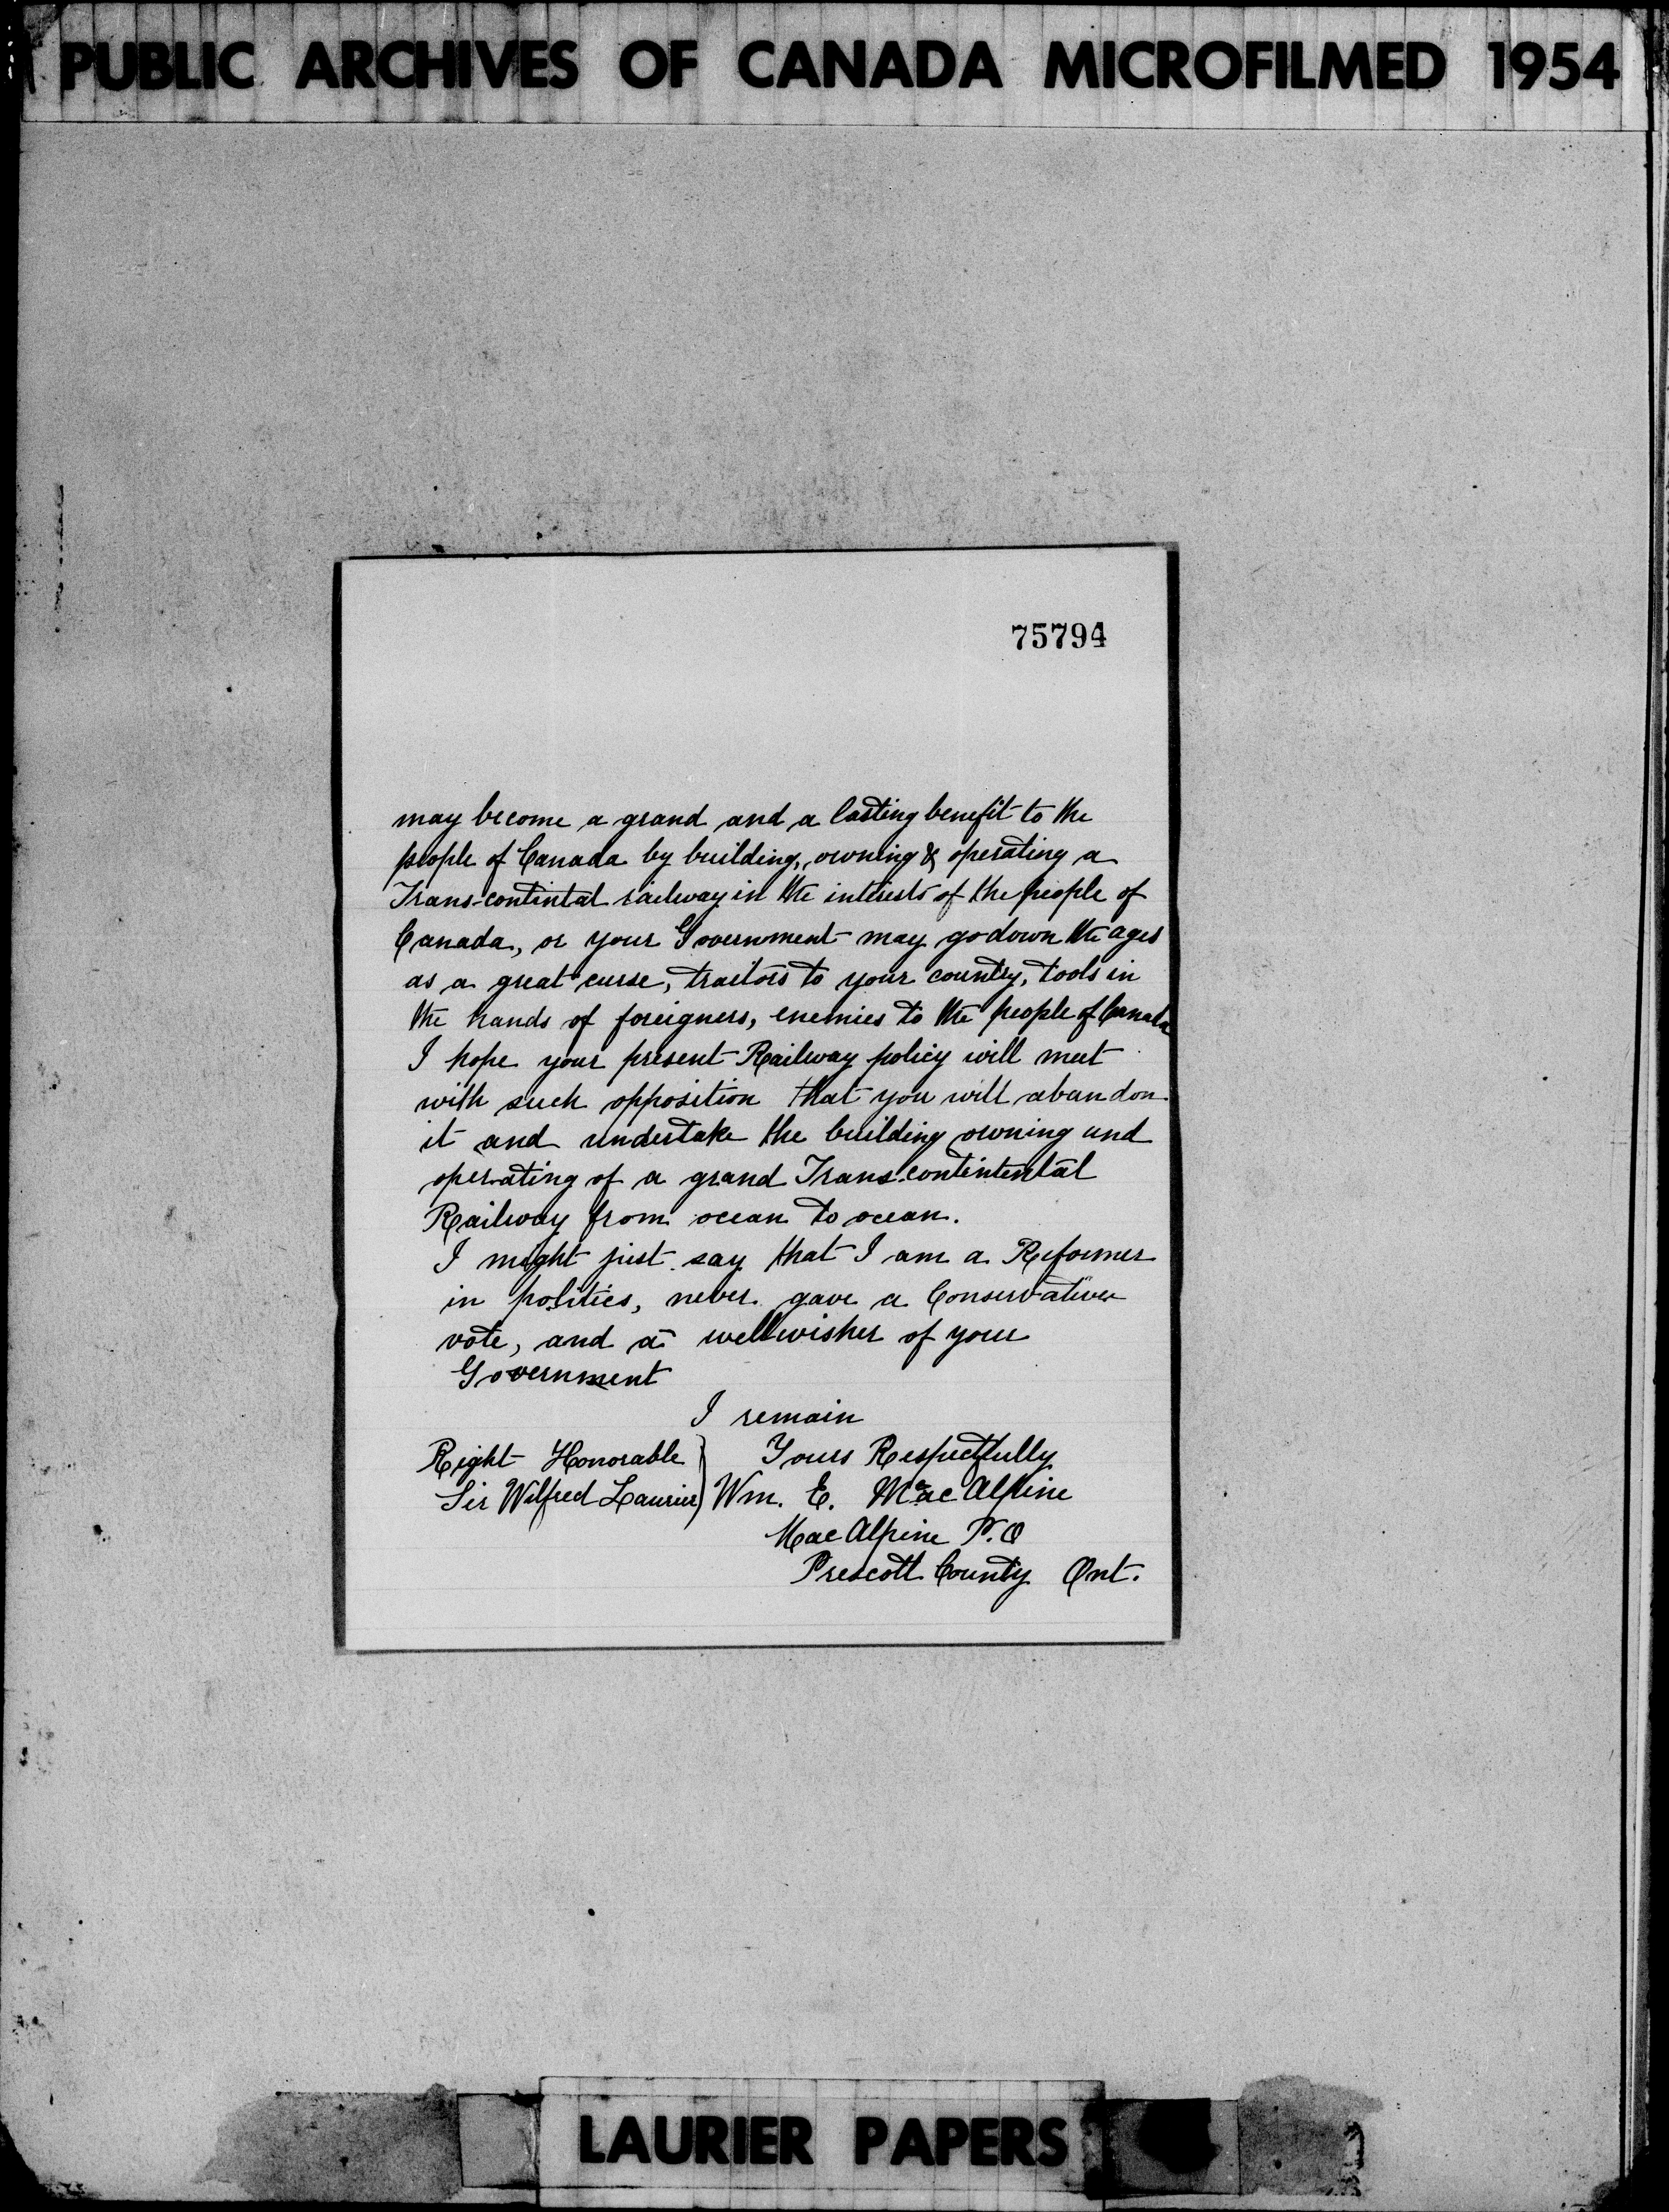 PUBLIC ARCHIVES OF CANADA MICROFILMED 1954
75794
may become a grand and a lasting benefit to the
people of Canada by building, owning & operating a
Trans-contintal railway in the interests of the people of
Canada, or your Government may go down the ages
as a great curse, traitors to your country, tools in
the hands of foreigners, enemies to the people of Canada
I hope your present Railway policy will meet
with such opposition that you will abandon
it and undertake the building owning and
operating of a grand Trans-contintental
Railway from ocean to ocean.
I might just say that I am a Reformer
in politics, never gave a Conservative
vote, and a wellwisher of your
Government
I remain
Right Honorable } Yours Respectfully
Sir Wilfred Laurier } Wm. E. MacAlpine
MacAlpine P.O
Prescott County Ont.
LAURIER PAPERS